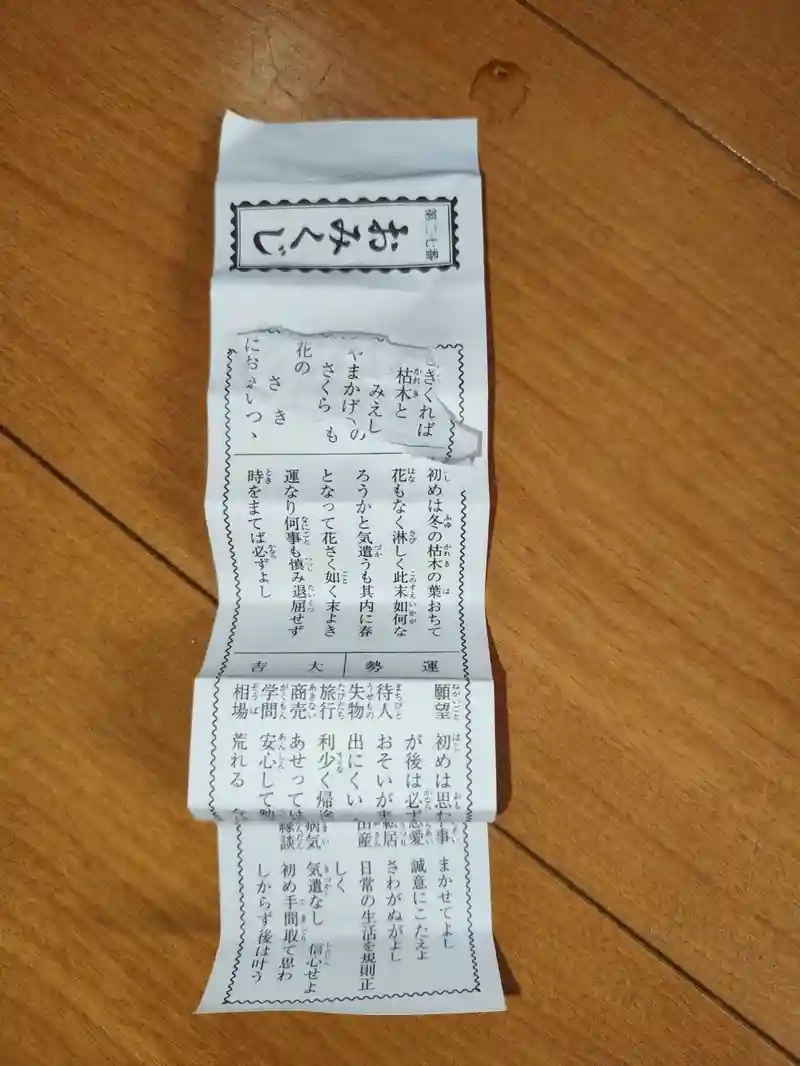 第二七番
おみくじ
きくれば
枯木と
みえし
やまかげの
さくら も
花の
さ き
にお いつゝ
初めは冬の枯木の葉おちて
花もなく淋しく此末如何な
ろうかと気遣うも其内に春
となって花さく如く末よき
運なり何事も慎み退屈せず
時をまてば必ずよし
運勢 大吉
願望 初めは思む事
が後は必ず
待人 おそいが
失物 出にくい
旅行 利少く帰
商売 あせっては
学問 安心して
相場 荒れる
恋愛 誠意にこたえよ
まかせてよし
転居 さわがぬがよし
出産 日常の生活を規則正
しく
病気 気遣なし 信心せよ
縁談 初め手間取て思わ
しからず後は叶う